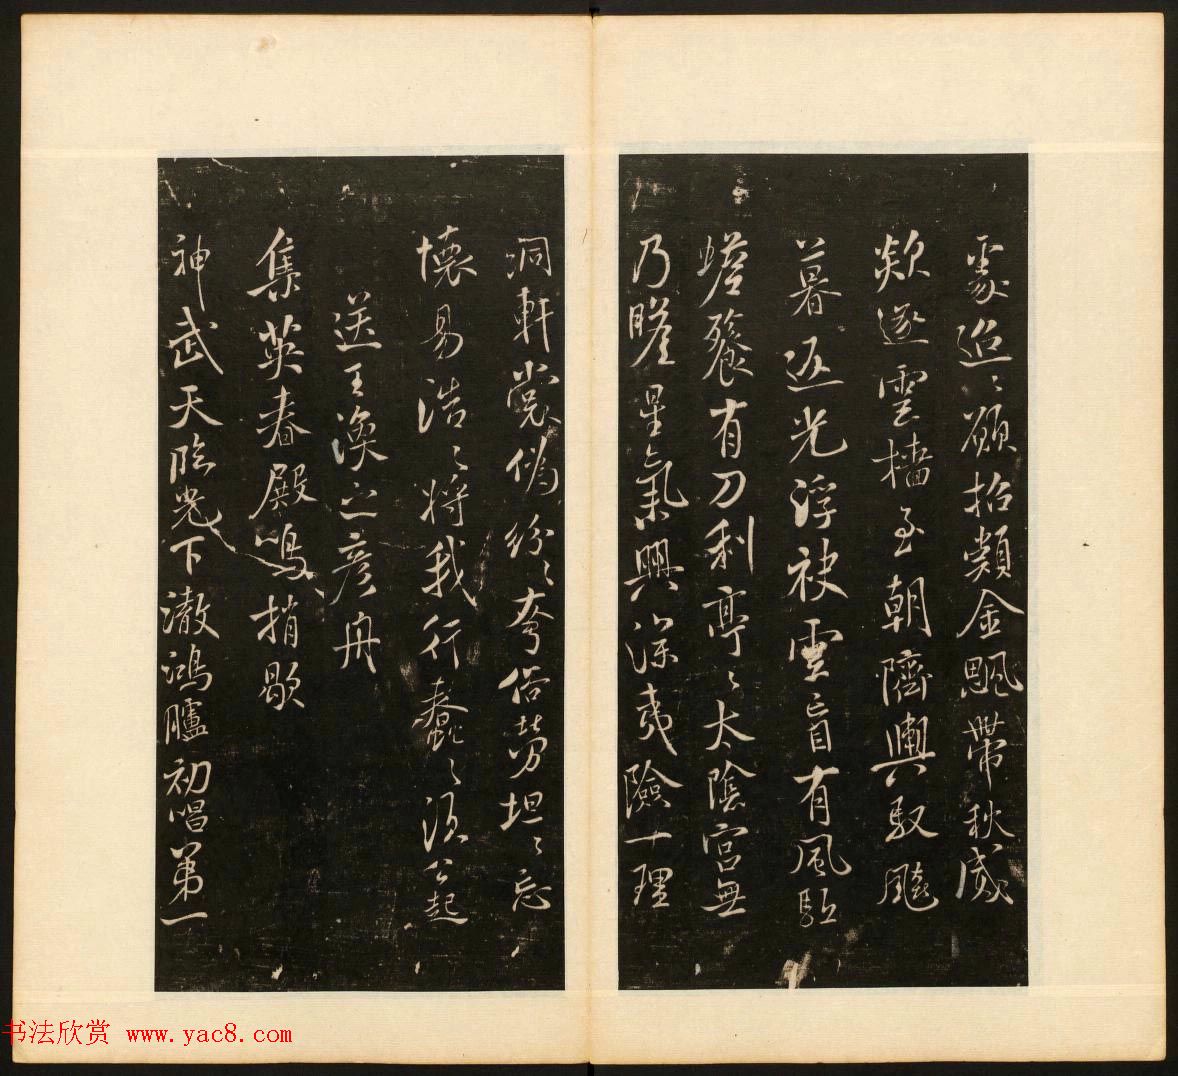 處迢〻願招類金飔帶秋威
欻逐雲檣至朝隮輿馭飈
暮返光浮袂雲盲有風驅
蟾餮有刀利亭〻太陰宮無
乃瞻星氣興深夷險一理
洞軒裳偽紛〻夸俗勞坦〻忘
懷易浩〻將我行蠢〻須公起
送王渙之彥舟
集英春殿鳴捎歇
神武天臨光下澈鴻臚初唱第一
书法欣赏 www.yac8.com